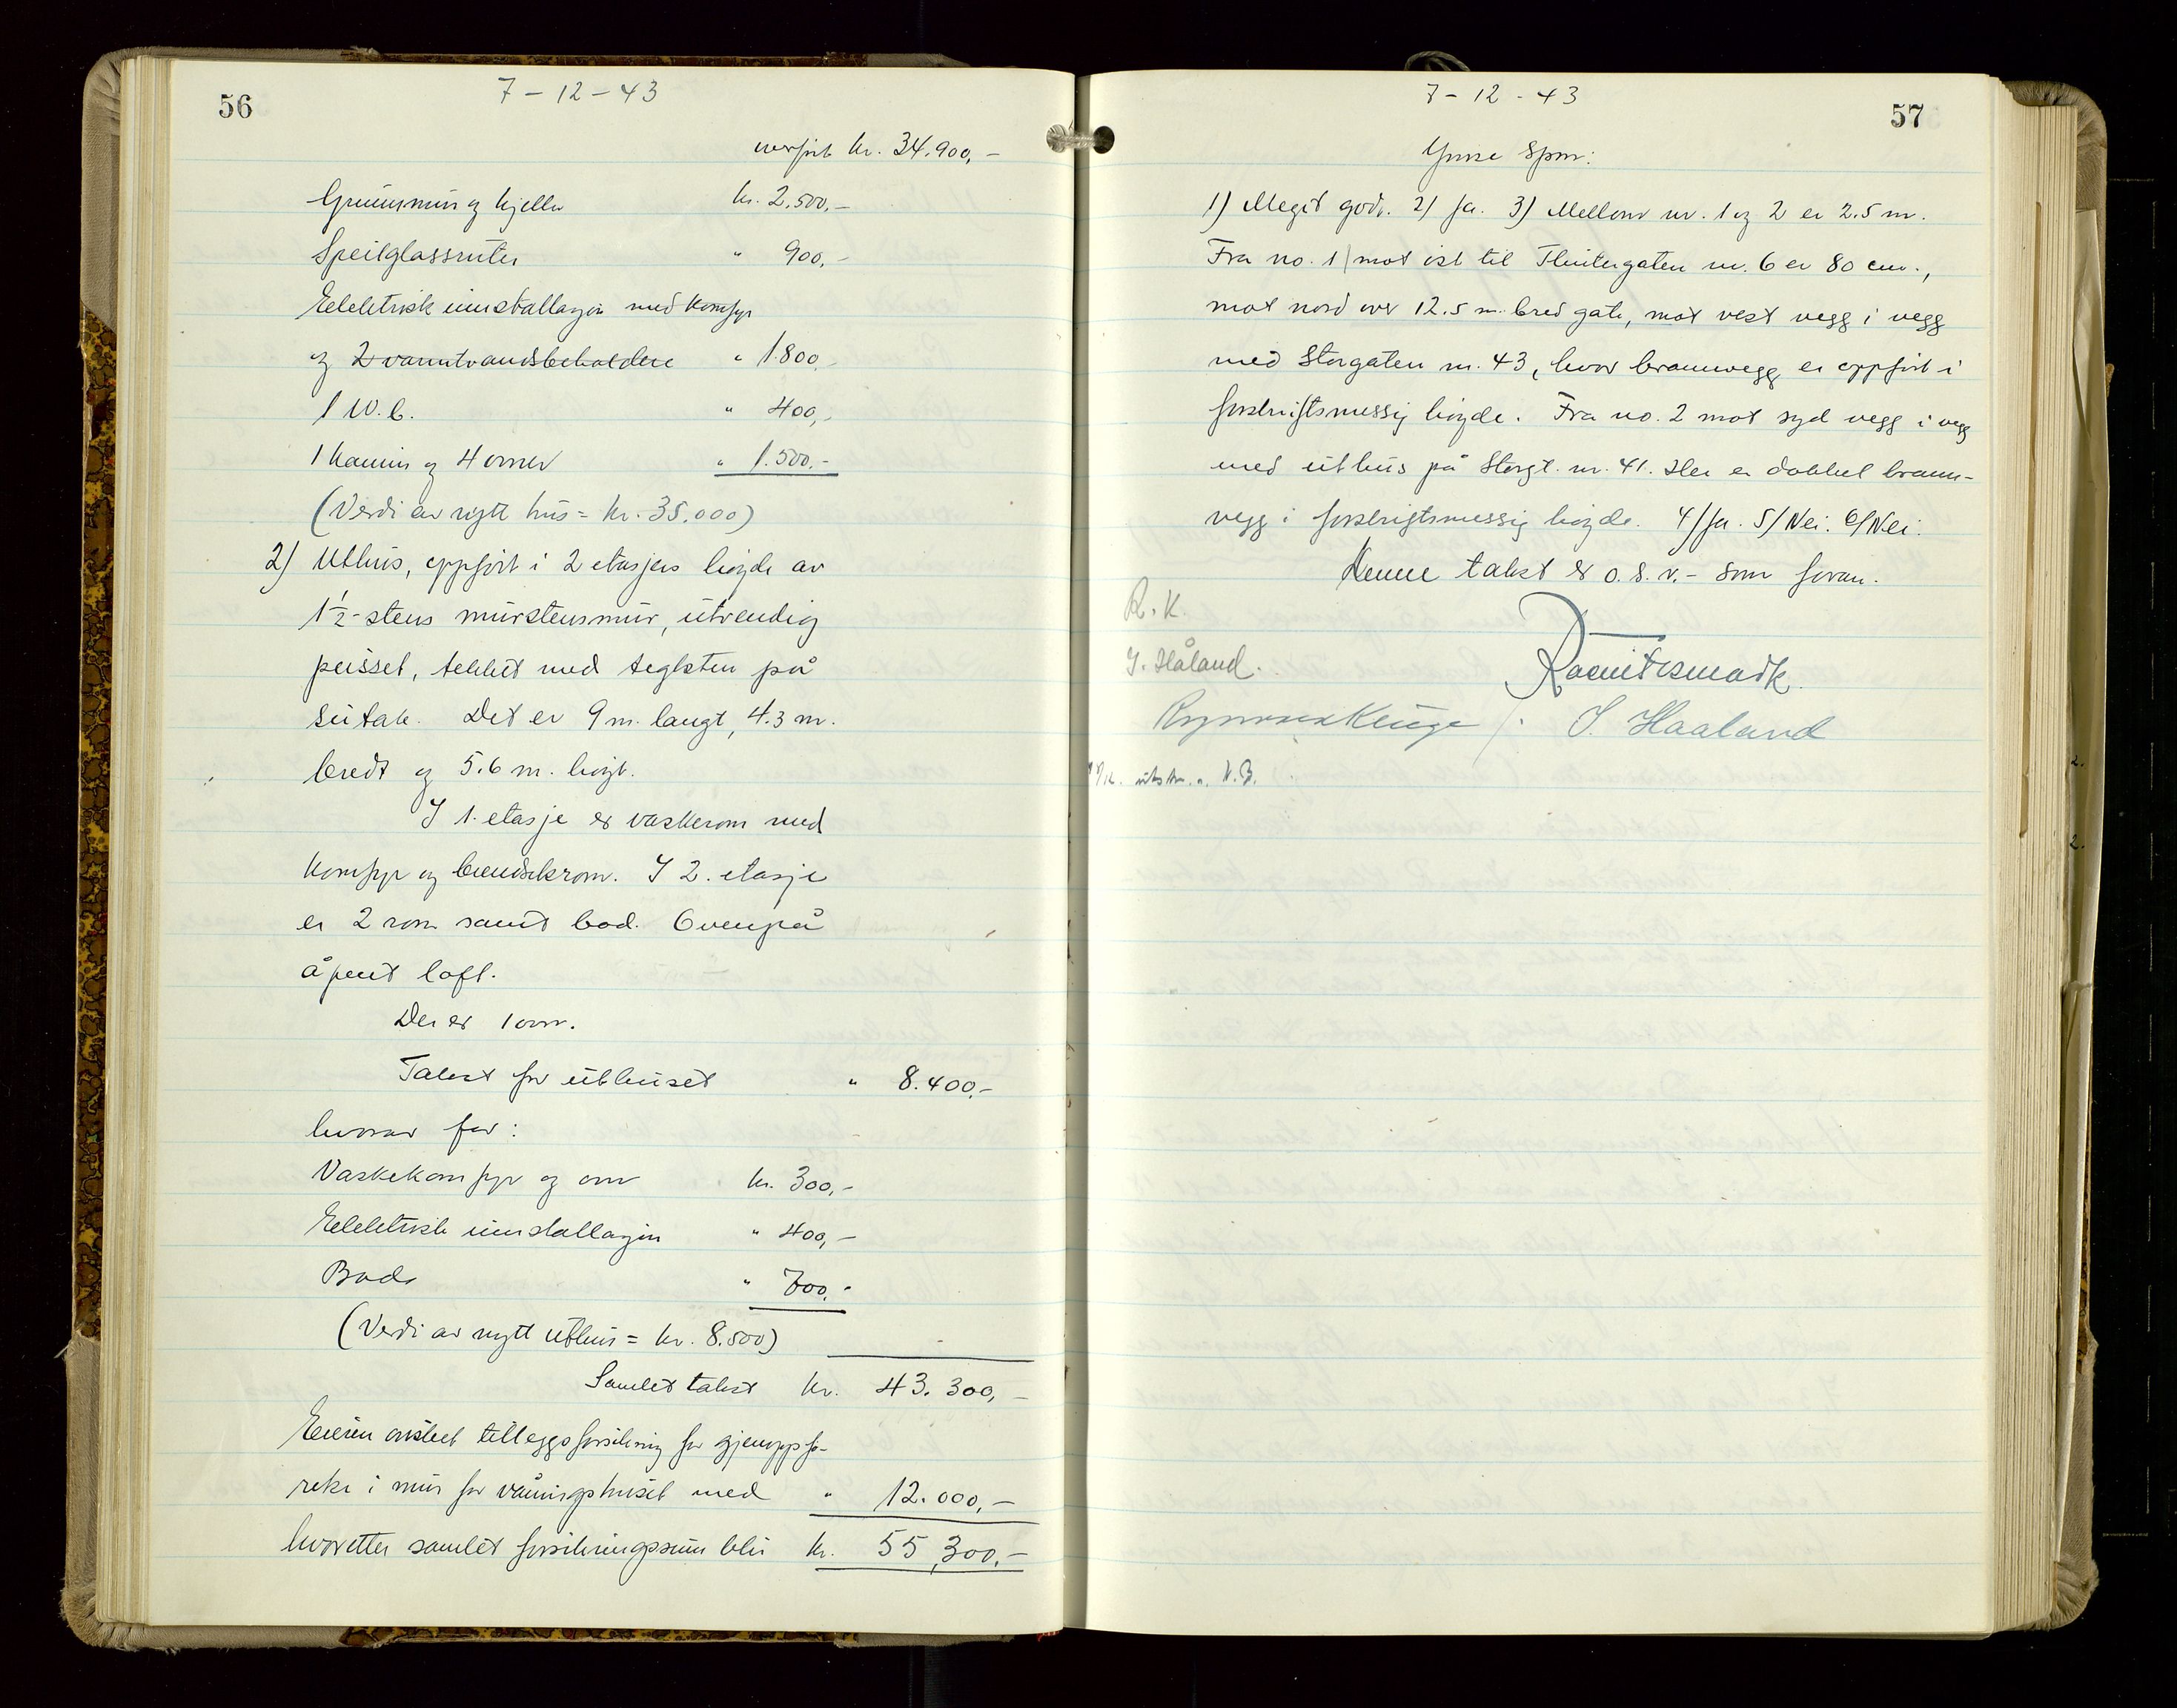 56
7 - 12 - 43
overført kr. 34.900,-
Grunnmur og kjeller kr. 2.500,-
Speilglassruter " 900,-
Eelektrisk innstallasjon med komfyr
og 2 varmtvandsbeholdere " 1.800,-
1 W.C. " 400,-
1 kamin og 4 ovner " 1.500.-
(Verdi av nytt hus = kr. 35.000)
2) Uthus, oppført i 2 etasjers høyde av
1½-stens murstensmur, utvendig
pusset, tekket med teglsten på
sutak. Det er 9 m. langt, 4.3 m.
bredt og 5.6 m. høyt.
I 1. etasje er vaskerom med
komfyr og brendselsrom. I 2. etasje
er 2 rom samt bod. Ovenpå
åpent loft.
Der er 1 ovn.
Takst for uthuset " 8.400,-
hvorav for:
Vaskekomfyr og ovn kr. 300,-
Eelektrisk innstallasjon " 400,-
Bade " 700,-
(Verdi av nytt uthus = kr. 8.500)
Samlet takst kr. 43.300,-
Eieren ønsket tilleggsforsikring for gjenoppfø-
relse i mur for våningshuset med " 12.000,-
hvoretter samlet forsikringssum blir kr. 55,300.-
57
7 - 12 - 43
Ymse Spm:
1) Meget god. 2) Ja. 3) Mellom nr. 1 og 2 er 2.5 m.
Fra no. 1 mot øst til Flintegaten nr. 6 er 80 cm.,
mot nord over 12.5 m. bred gate, mot vest vegg i vegg
med Storgaten nr. 43, hvor brannvegg er oppført i
forskriftsmessig høyde. Fra no. 2 mot syd vegg i vegg
med uthus på Storgt. nr. 41. Her er dobbel brann-
vegg i forskriftsmessig høyde. 4) Ja. 5) Nei. 6) Nei.
Denne takst er o.s.v.- som foran.
R. K.
I. Håland.
I. Haaland
utskr.